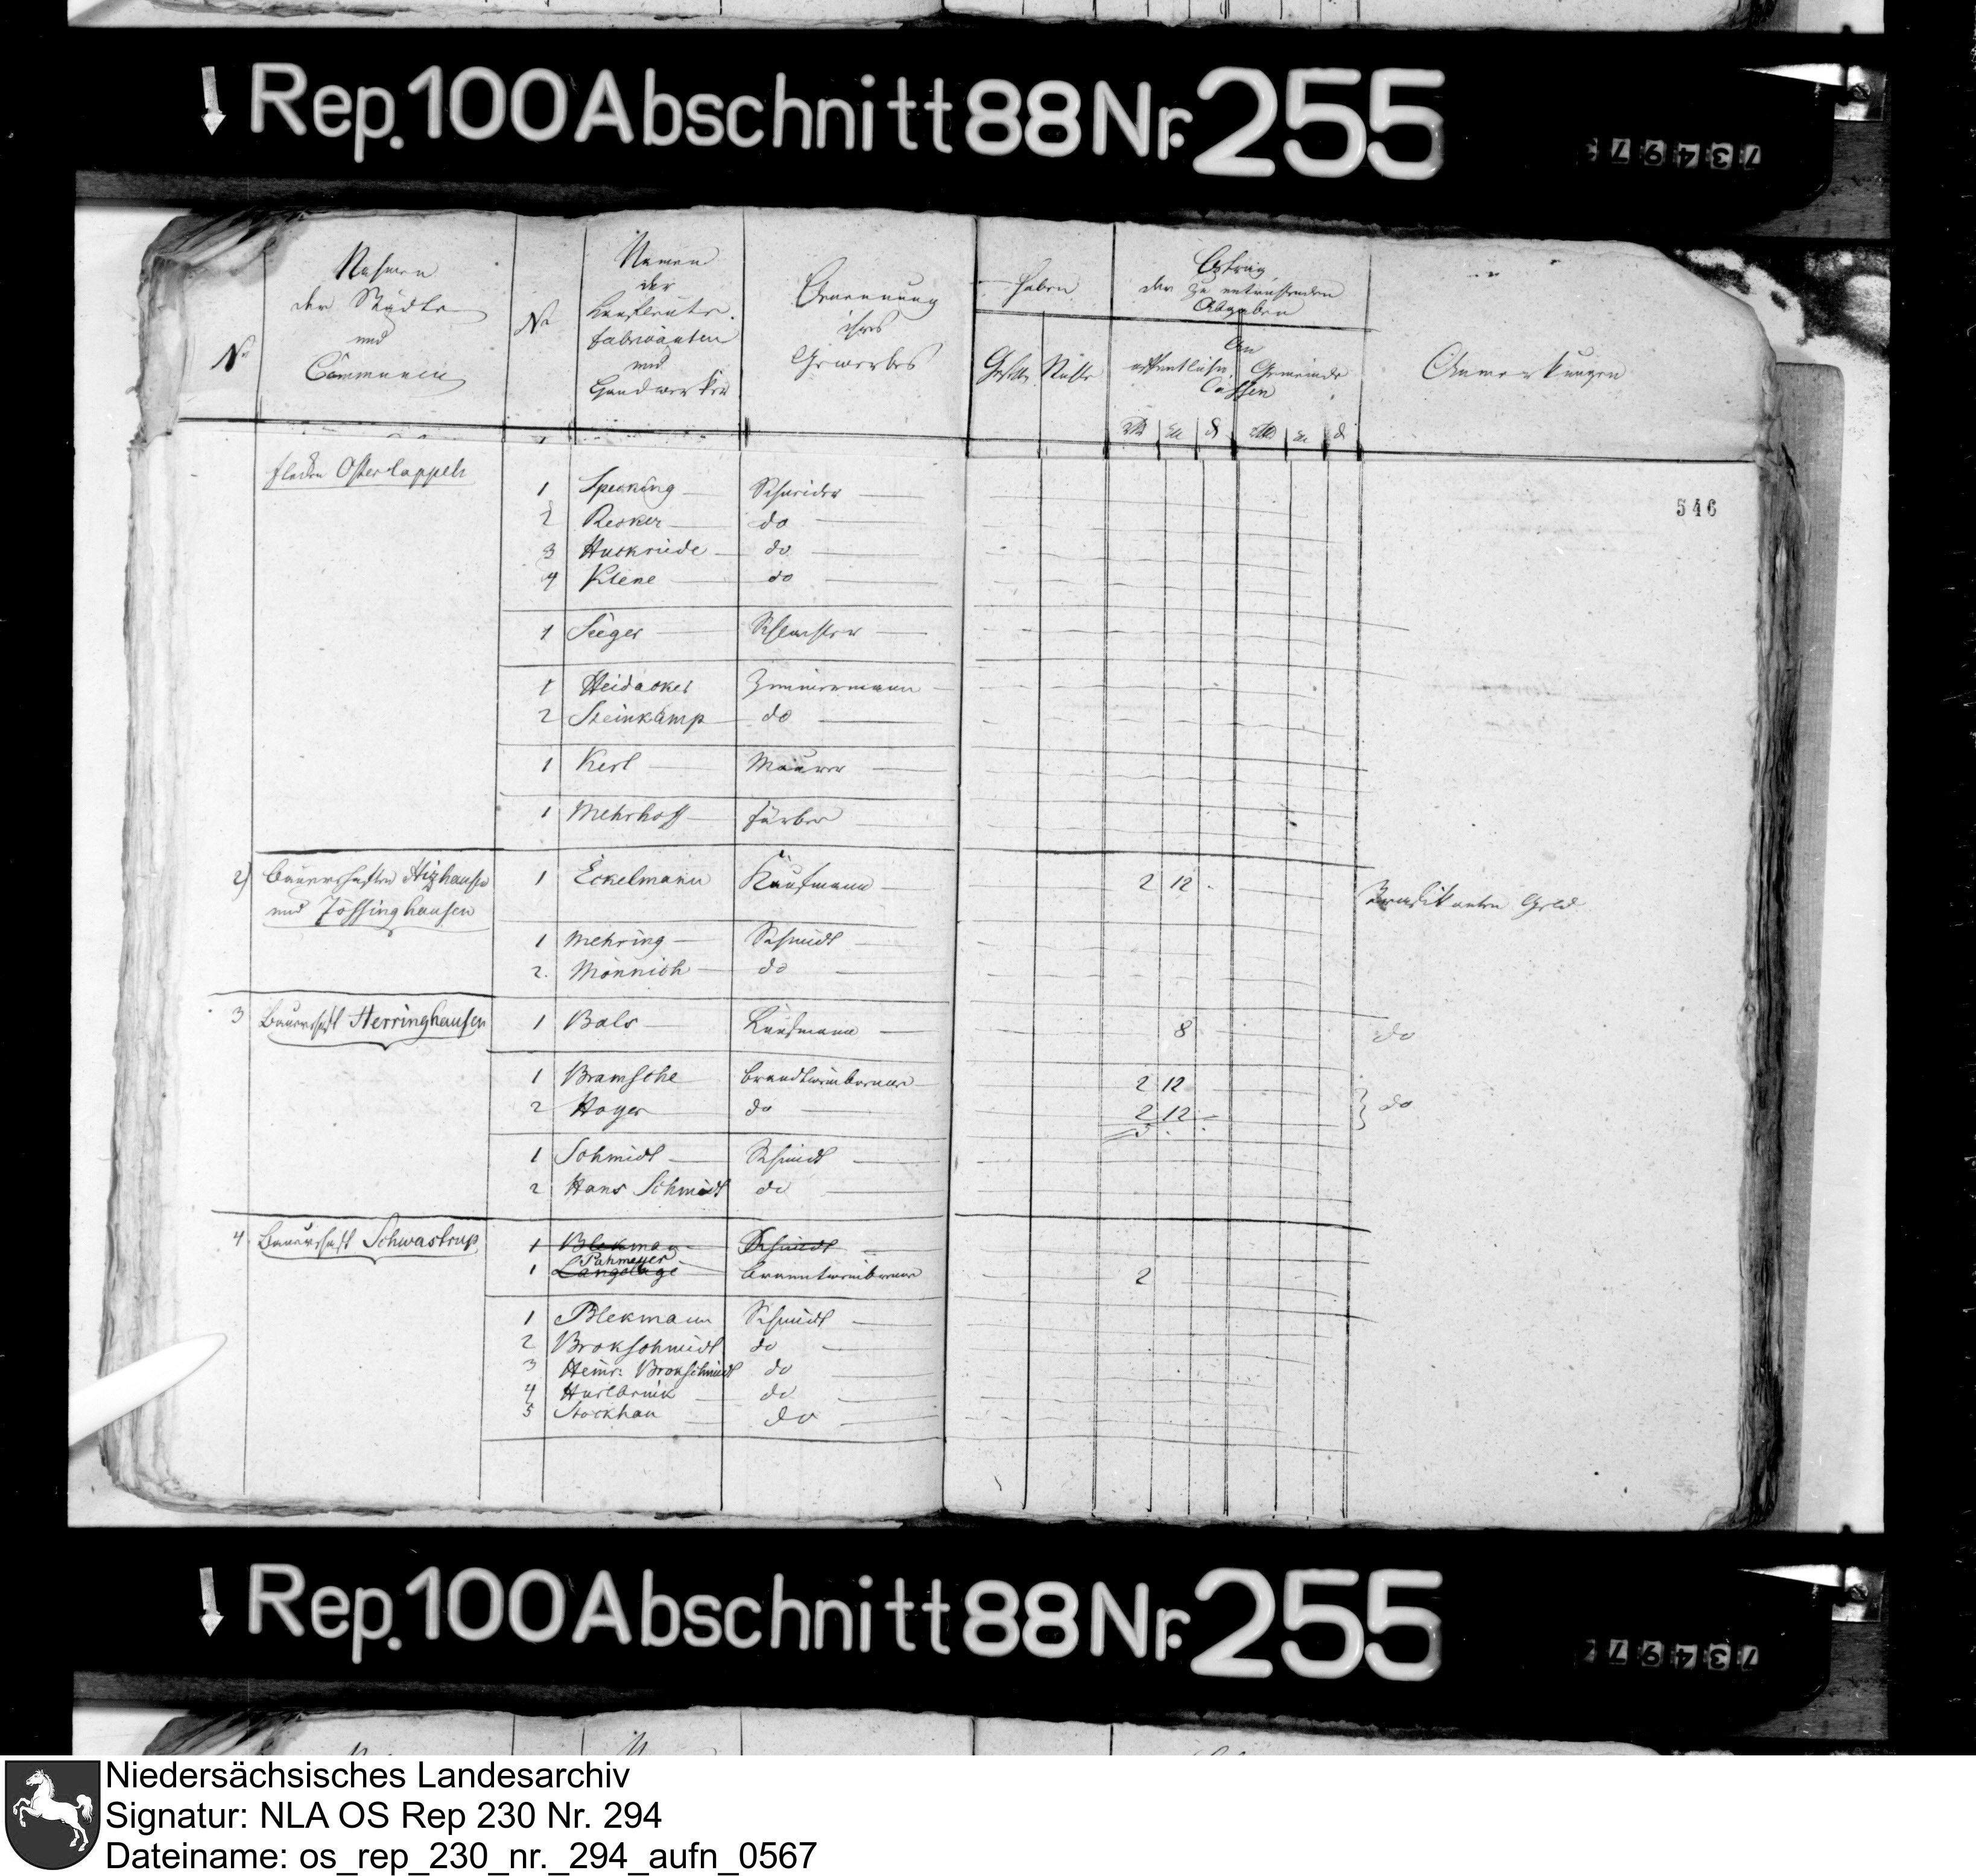 Rep. 100 Abschnitt 88 Nr. 255
73497
No
Nahmen
der Städte
und
Communen
No
Namen
der
Kaufleute.
Fabricanten
und
Handwerker
Benennung
ihres
Gewerbes
haben
Betrag
der zu entrichtenden
Abgaben
An
öffentliche Gemeinde
Cassen
Anmerkungen
Flecken Ostercappeln
546
1 Specking Schneider
2 Recker do
3 Huckriede do
4 Klene do
1 Sieger Schlachter
1 Heidacker Zimmermann
2 Steinkamp do
1 Kerl Maurer
1 Mehrhoff Färber
2) Bauerschaften Hizhausen 1 Eckelmann Kaufmann 2 12
und Jöstinghausen
1 Mehring Schmidt
2. Mönnich do
3 Bauerschaft Herringhausen 1 Bals Kaufmann 8 do
1 Bramsche Brandtweinbrenner 2 12
2 Hoyer do 2 12 do
5
1 Schmidt Schmidt
2 Hans Schmidt do
4 Bauerschaft Schwastrup 1 Blekman Schmidt
Pahmeyer
1 Langelage Branntweinbrenner 2
1 Blekmann Schmidt
2 Brokschmidt do
3 Heinr: Brokschmidt do
4 Hurlbrink do
5 Stockhau do
Rep. 100 Abschnitt 88 Nr. 255
73497
Niedersächsisches Landesarchiv
Signatur: NLA OS Rep 230 Nr. 294
Dateiname: os_rep_230_nr._294_aufn_0567